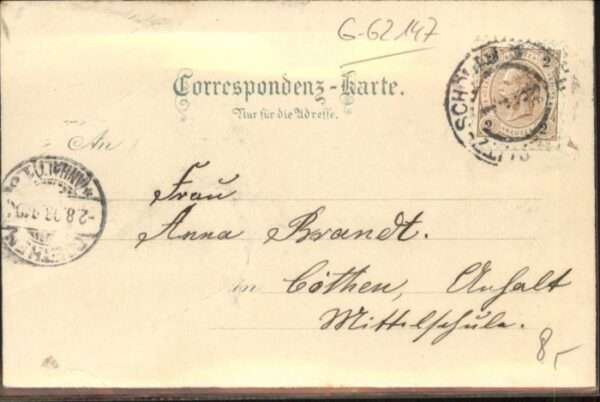 G-62147
Correspondenz-Karte.
Nur für die Adresse.
An
Frau
Anna Brandt.
in Cöthen, Anhalt
Mittelschule.
8,-